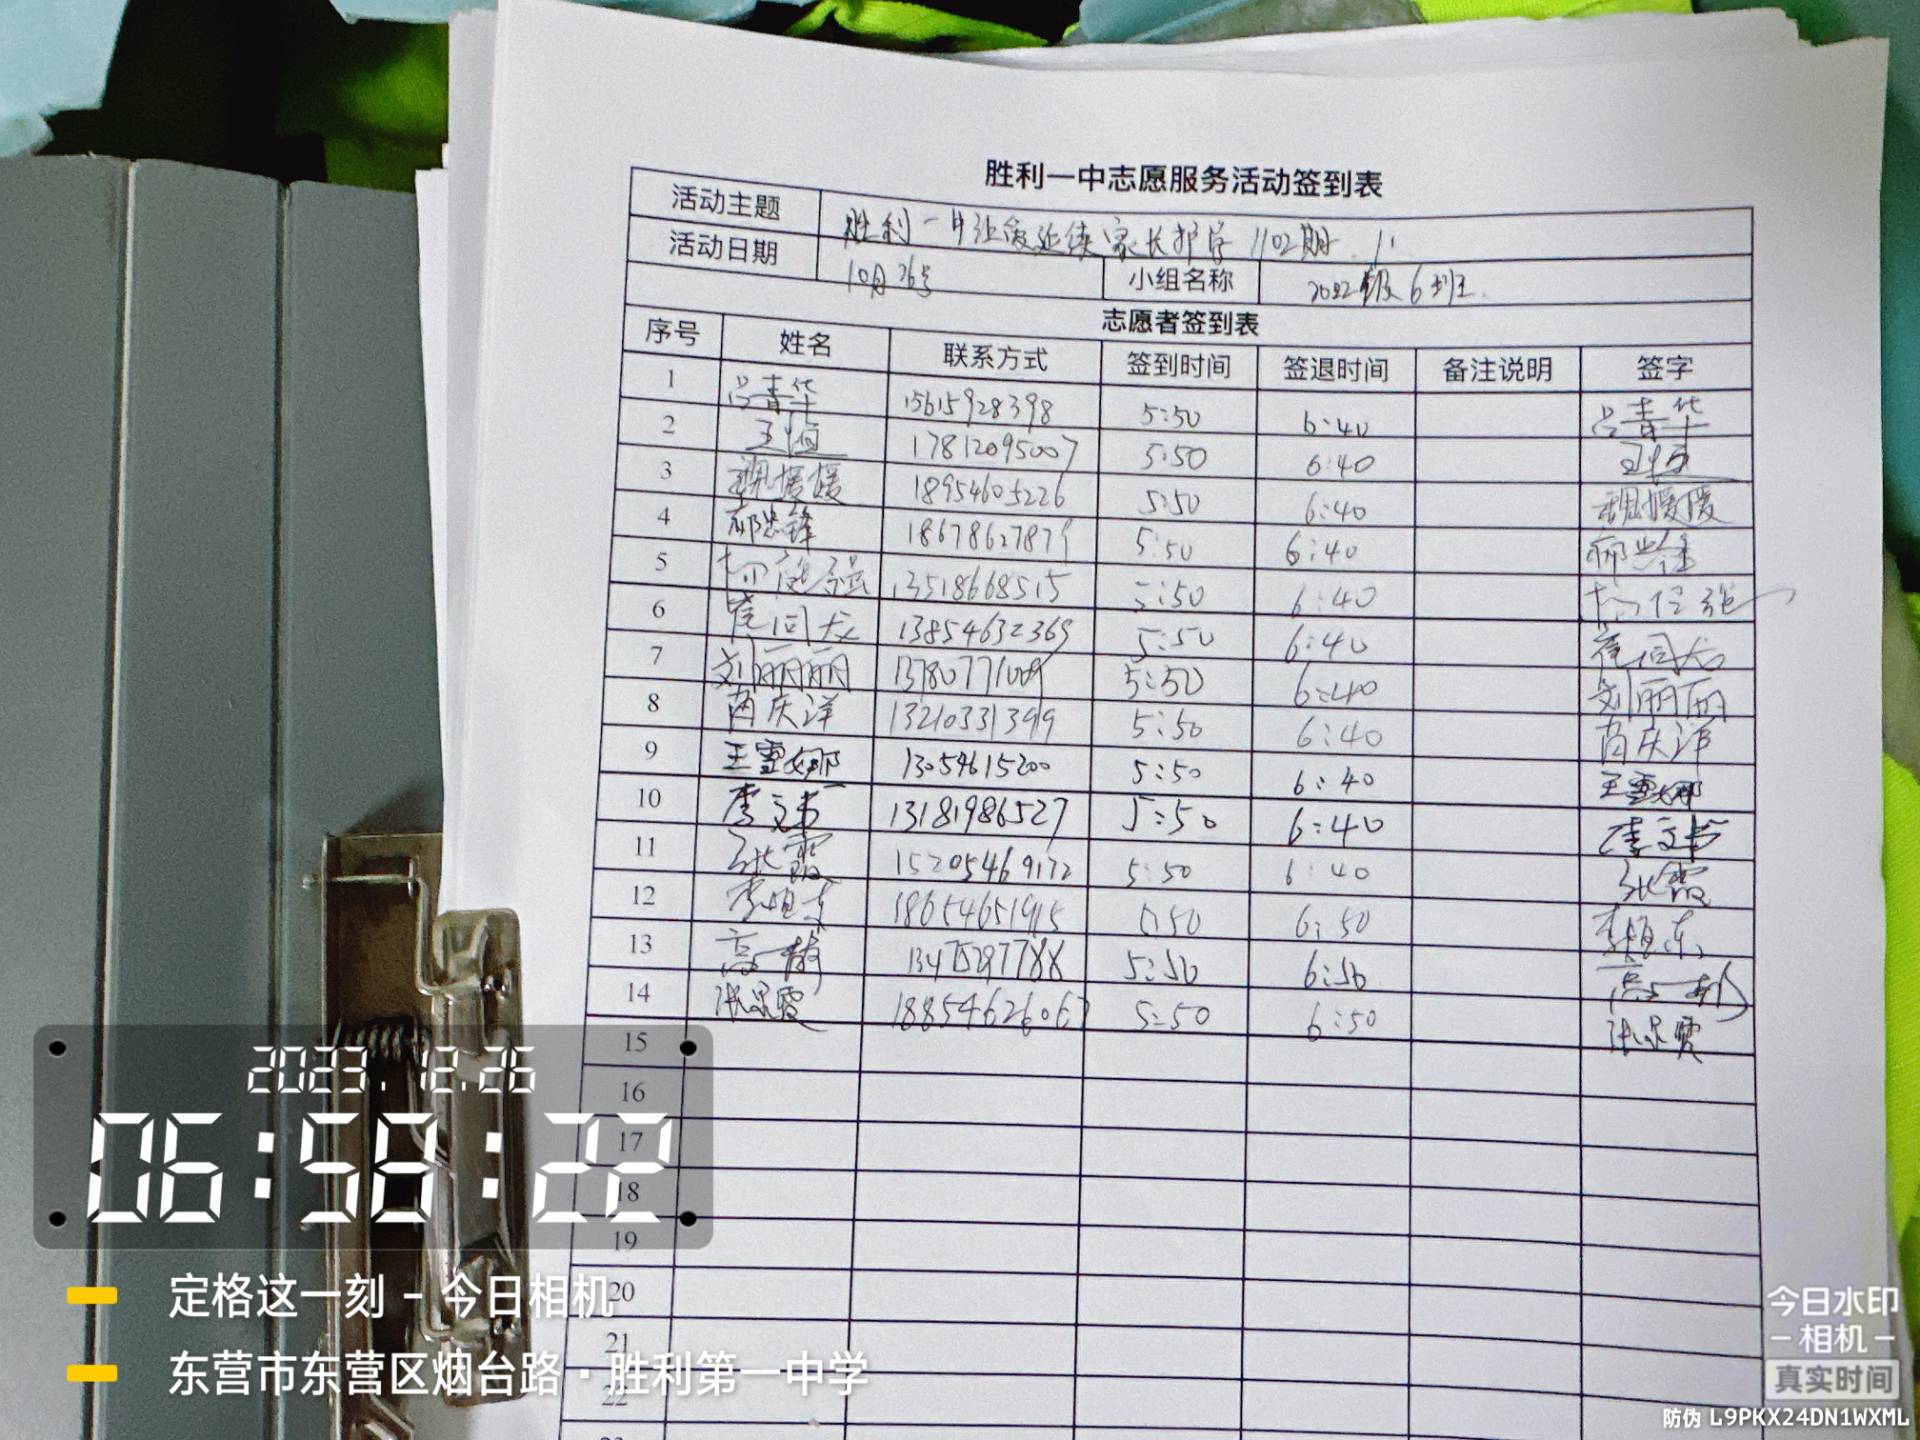 胜利一中志愿服务活动签到表
活动主题 胜利一中让爱延续家长护学1102期
活动日期 10月26号 小组名称 2022级6班
志愿者签到表
序号 姓名 联系方式 签到时间 签退时间 备注说明 签字
1 吕青华 15615928398 5:50 6:40 吕青华
2 王恒 17812095007 5:50 6:40 王恒
3 媛媛 18954605226 5:50 6:40 媛媛
4 18678627879 5:50 6:40
5 13518668515 5:50 6:40
6 崔同友 13854632369 5:50 6:40 崔同友
7 刘丽丽 13780771009 5:50 6:40 刘丽丽
8 苘庆洋 13210331399 5:50 6:40 苘庆洋
9 王雪娜 13054615200 5:50 6:40 王雪娜
10 李文书 13181986527 5:50 6:40 李文书
11 张霞 15205469172 5:50 6:40 张霞
12 李旭东 18654651915 5:50 6:50 李旭东
13 高静 13475297788 5:50 6:50 高静
14 18854626067 5:50 6:50
15
16
17
18
19
20
21
22
2023.12.26
06:58:22
定格这一刻 - 今日相机
东营市东营区烟台路·胜利第一中学
今日水印
- 相机 -
真实时间
防伪 L9PKX24DN1WXML